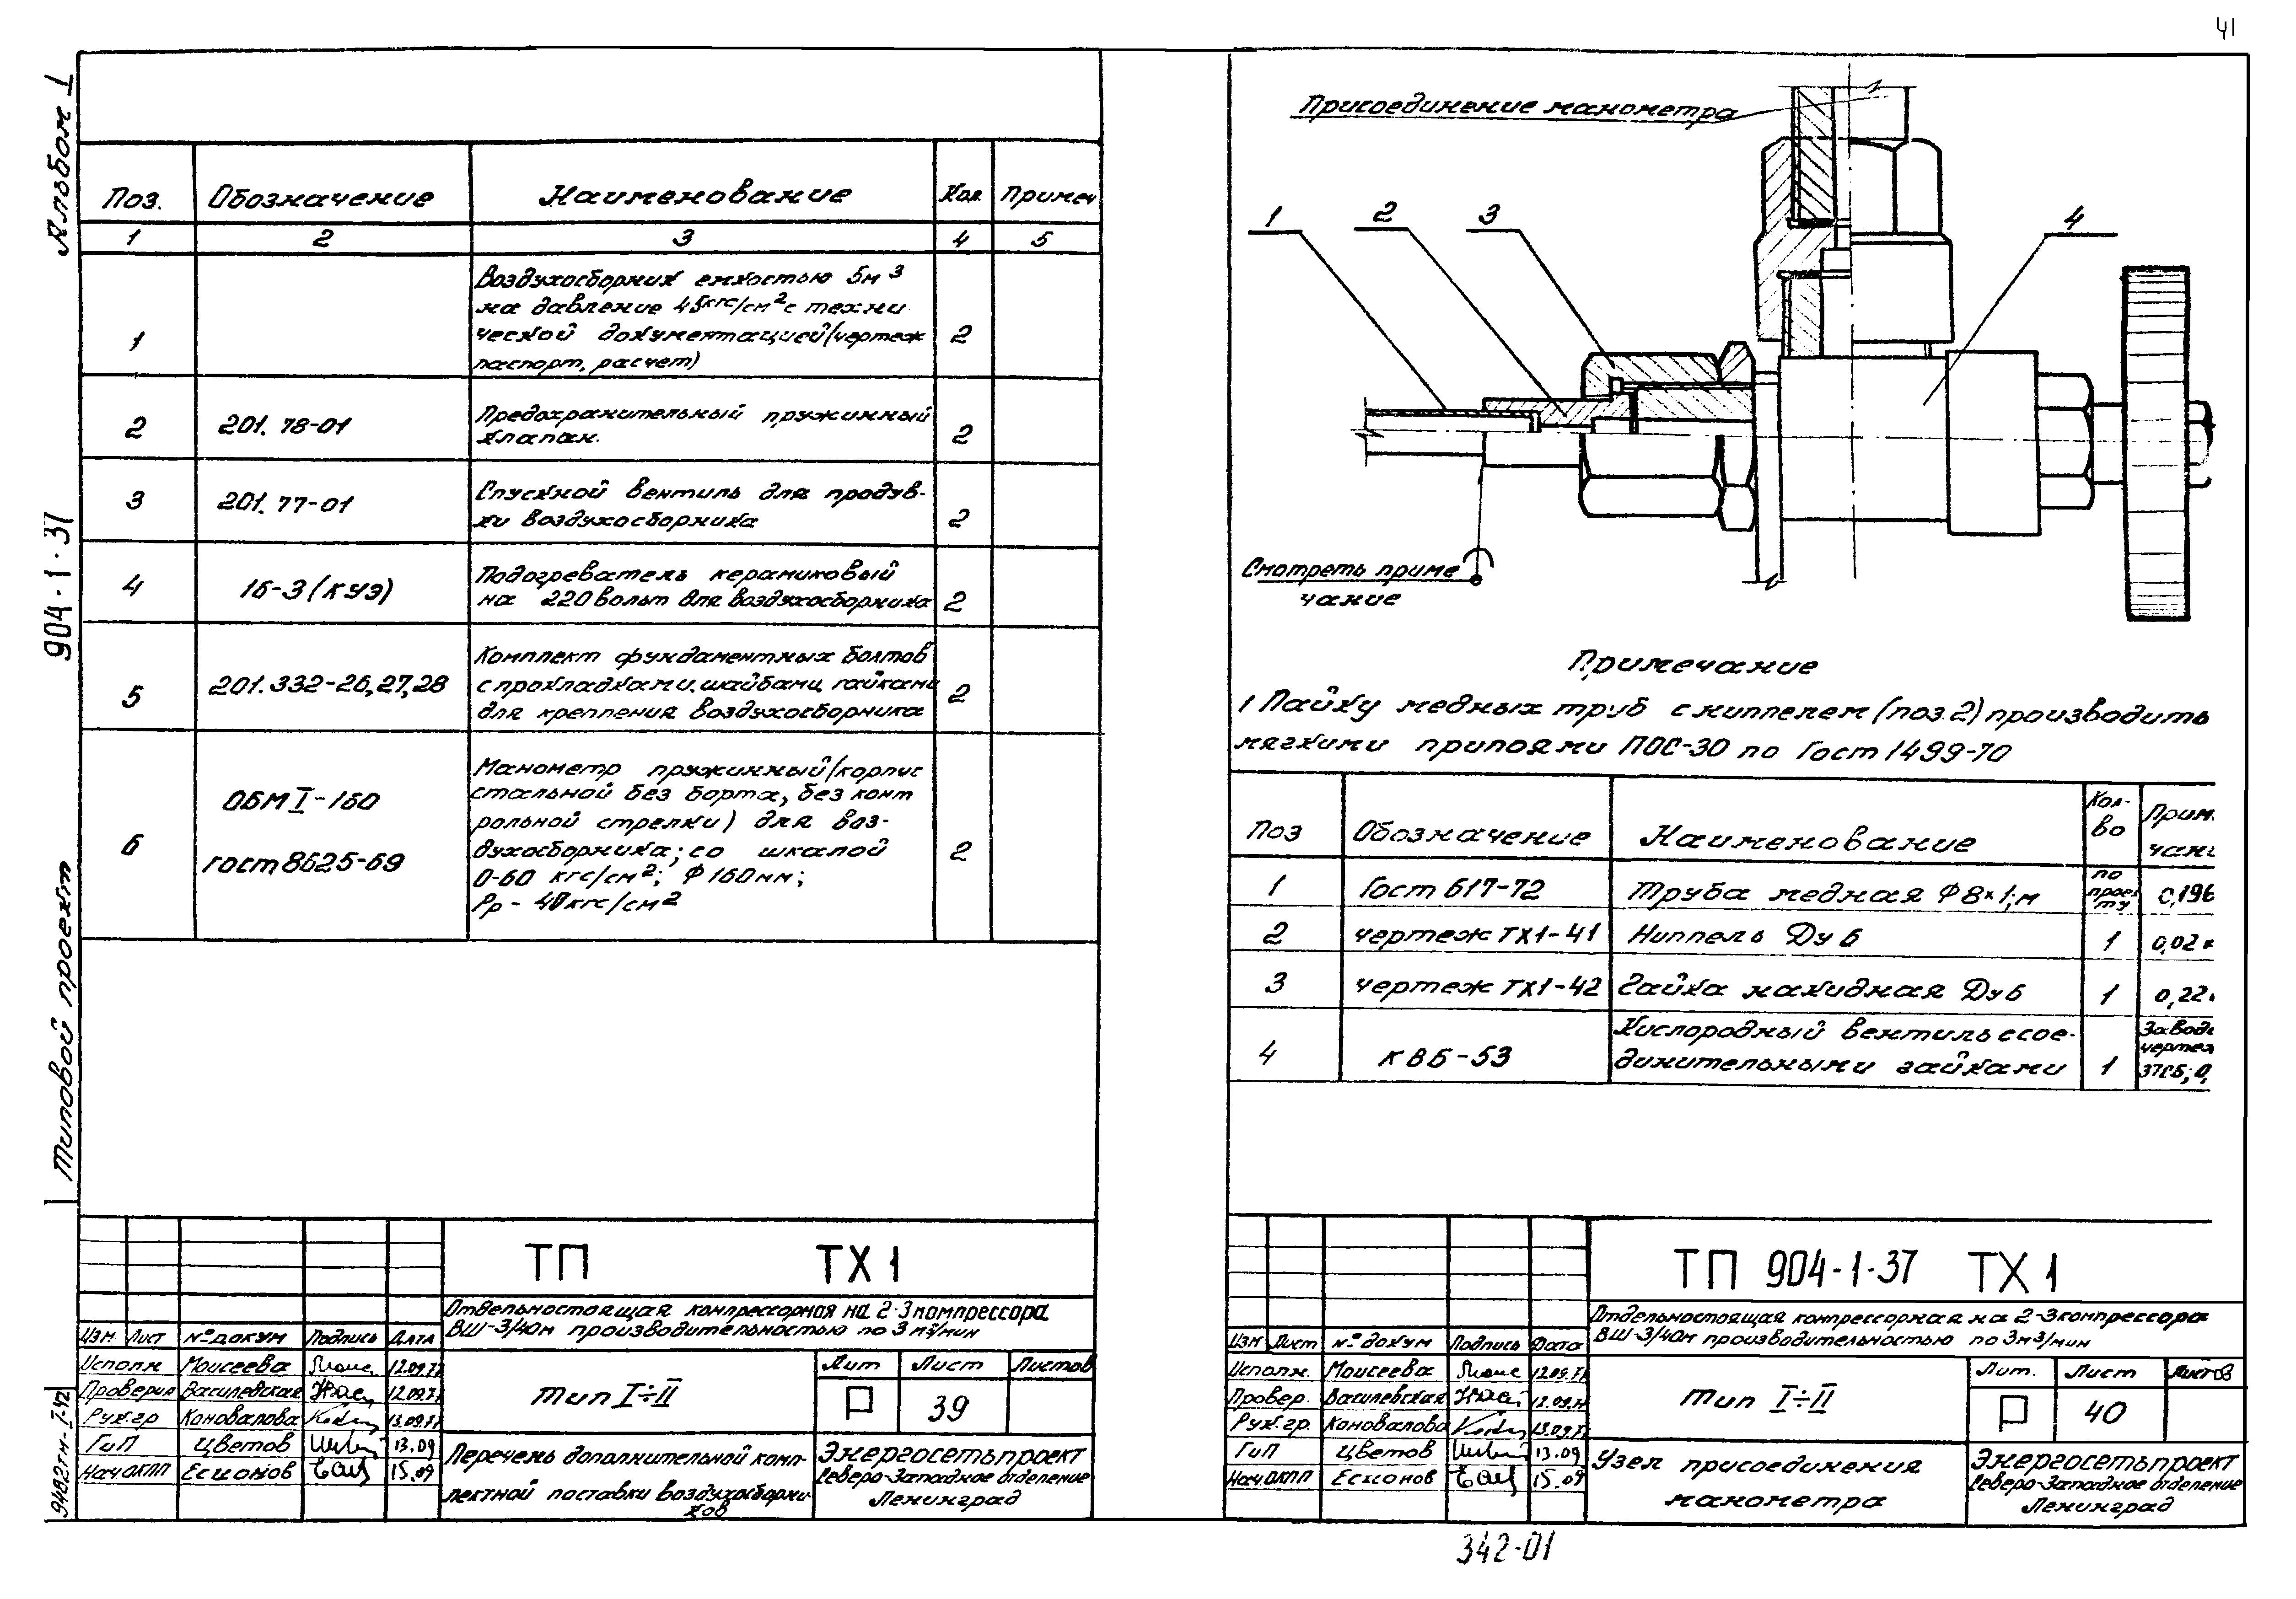 41
Альбом I
904-1-37
Типовой проект
9482тм-I-42
Поз. Обозначение Наименование Кол. Примеч
1 2 3 4 5
Воздухосборник емкостью 5м³
на давление 45кгс/см² с техни
ческой документацией (чертеж
паспорт, расчет)
1 2
2 201.78-01 Предохранительный пружинный
клапан. 2
3 201.77-01 Спускной вентиль для продув-
ки воздухосборника 2
4 16-3 (КУЭ) Подогреватель керамиковый
на 220 вольт для воздухосборника 2
5 201.332-26,27,28 Комплект фундаментных болтов
с прокладками, шайбами, гайками 2
для крепления воздухосборника
6 ОБМ I-160 Манометр пружинный (корпус
стальной без борта, без конт
рольной стрелки) для воз-
гост 8625-69 духосборника; со шкалой 2
0-60 кгс/см²; ф 160мм;
Рр - 40кгс/см²
ТП ТХ 1
Отдельностоящая компрессорная на 2-3 компрессора
ВШ-3/40м производительностью по 3 м³/мин
Изм. Лист № докум Подпись Дата
Исполн. Моисеева 12.09.77
Проверил Василевская 12.09.77
Рук.гр Коновалова 13.09.77
ГиП Цветов 13.09
Нач ОКПП Есионов 15.09
Тип I÷II
Лит Лист Листов
Р 39
Перечень дополнительной комп-
лектной поставки воздухосборни
ков
Энергосетьпроект
Северо-Западное отделение
Ленинград
Присоединение манометра
1 2 3 4
Смотреть приме
чание
Примечание
1 Пайку медных труб с ниппелем (поз.2) производить
мягкими припоями ПОС-30 по Гост 1499-70
Поз Обозначение Наименование Кол-
во Прим.
чани
1 Гост 617-72 Труба медная Ф 8×1; м по
проек
ту 0,196
2 чертеж ТХ1-41 Ниппель Ду 6 1 0,02 к
3 чертеж ТХ1-42 Гайка накидная Ду 6 1 0,22
4 КВБ-53 Кислородный вентиль с сое-
динительными гайками 1 Завод
чертеж
37СБ; 0,
ТП 904-1-37 ТХ 1
Отдельностоящая компрессорная на 2-3 компрессора
ВШ-3/40м производительностью по 3м³/мин
Изм Лист № докум Подпись Дата
Исполн. Моисеева 12.09.77
Провер. Василевская 12.09.77
Рук.гр. Коновалова 13.09.77
ГиП Цветов 13.09
Нач.ОКПП Есионов 15.09
Тип I÷II
Лит. Лист Листов
Р 40
Узел присоединения
манометра
Энергосетьпроект
Северо-Западное отделение
Ленинград
342-01